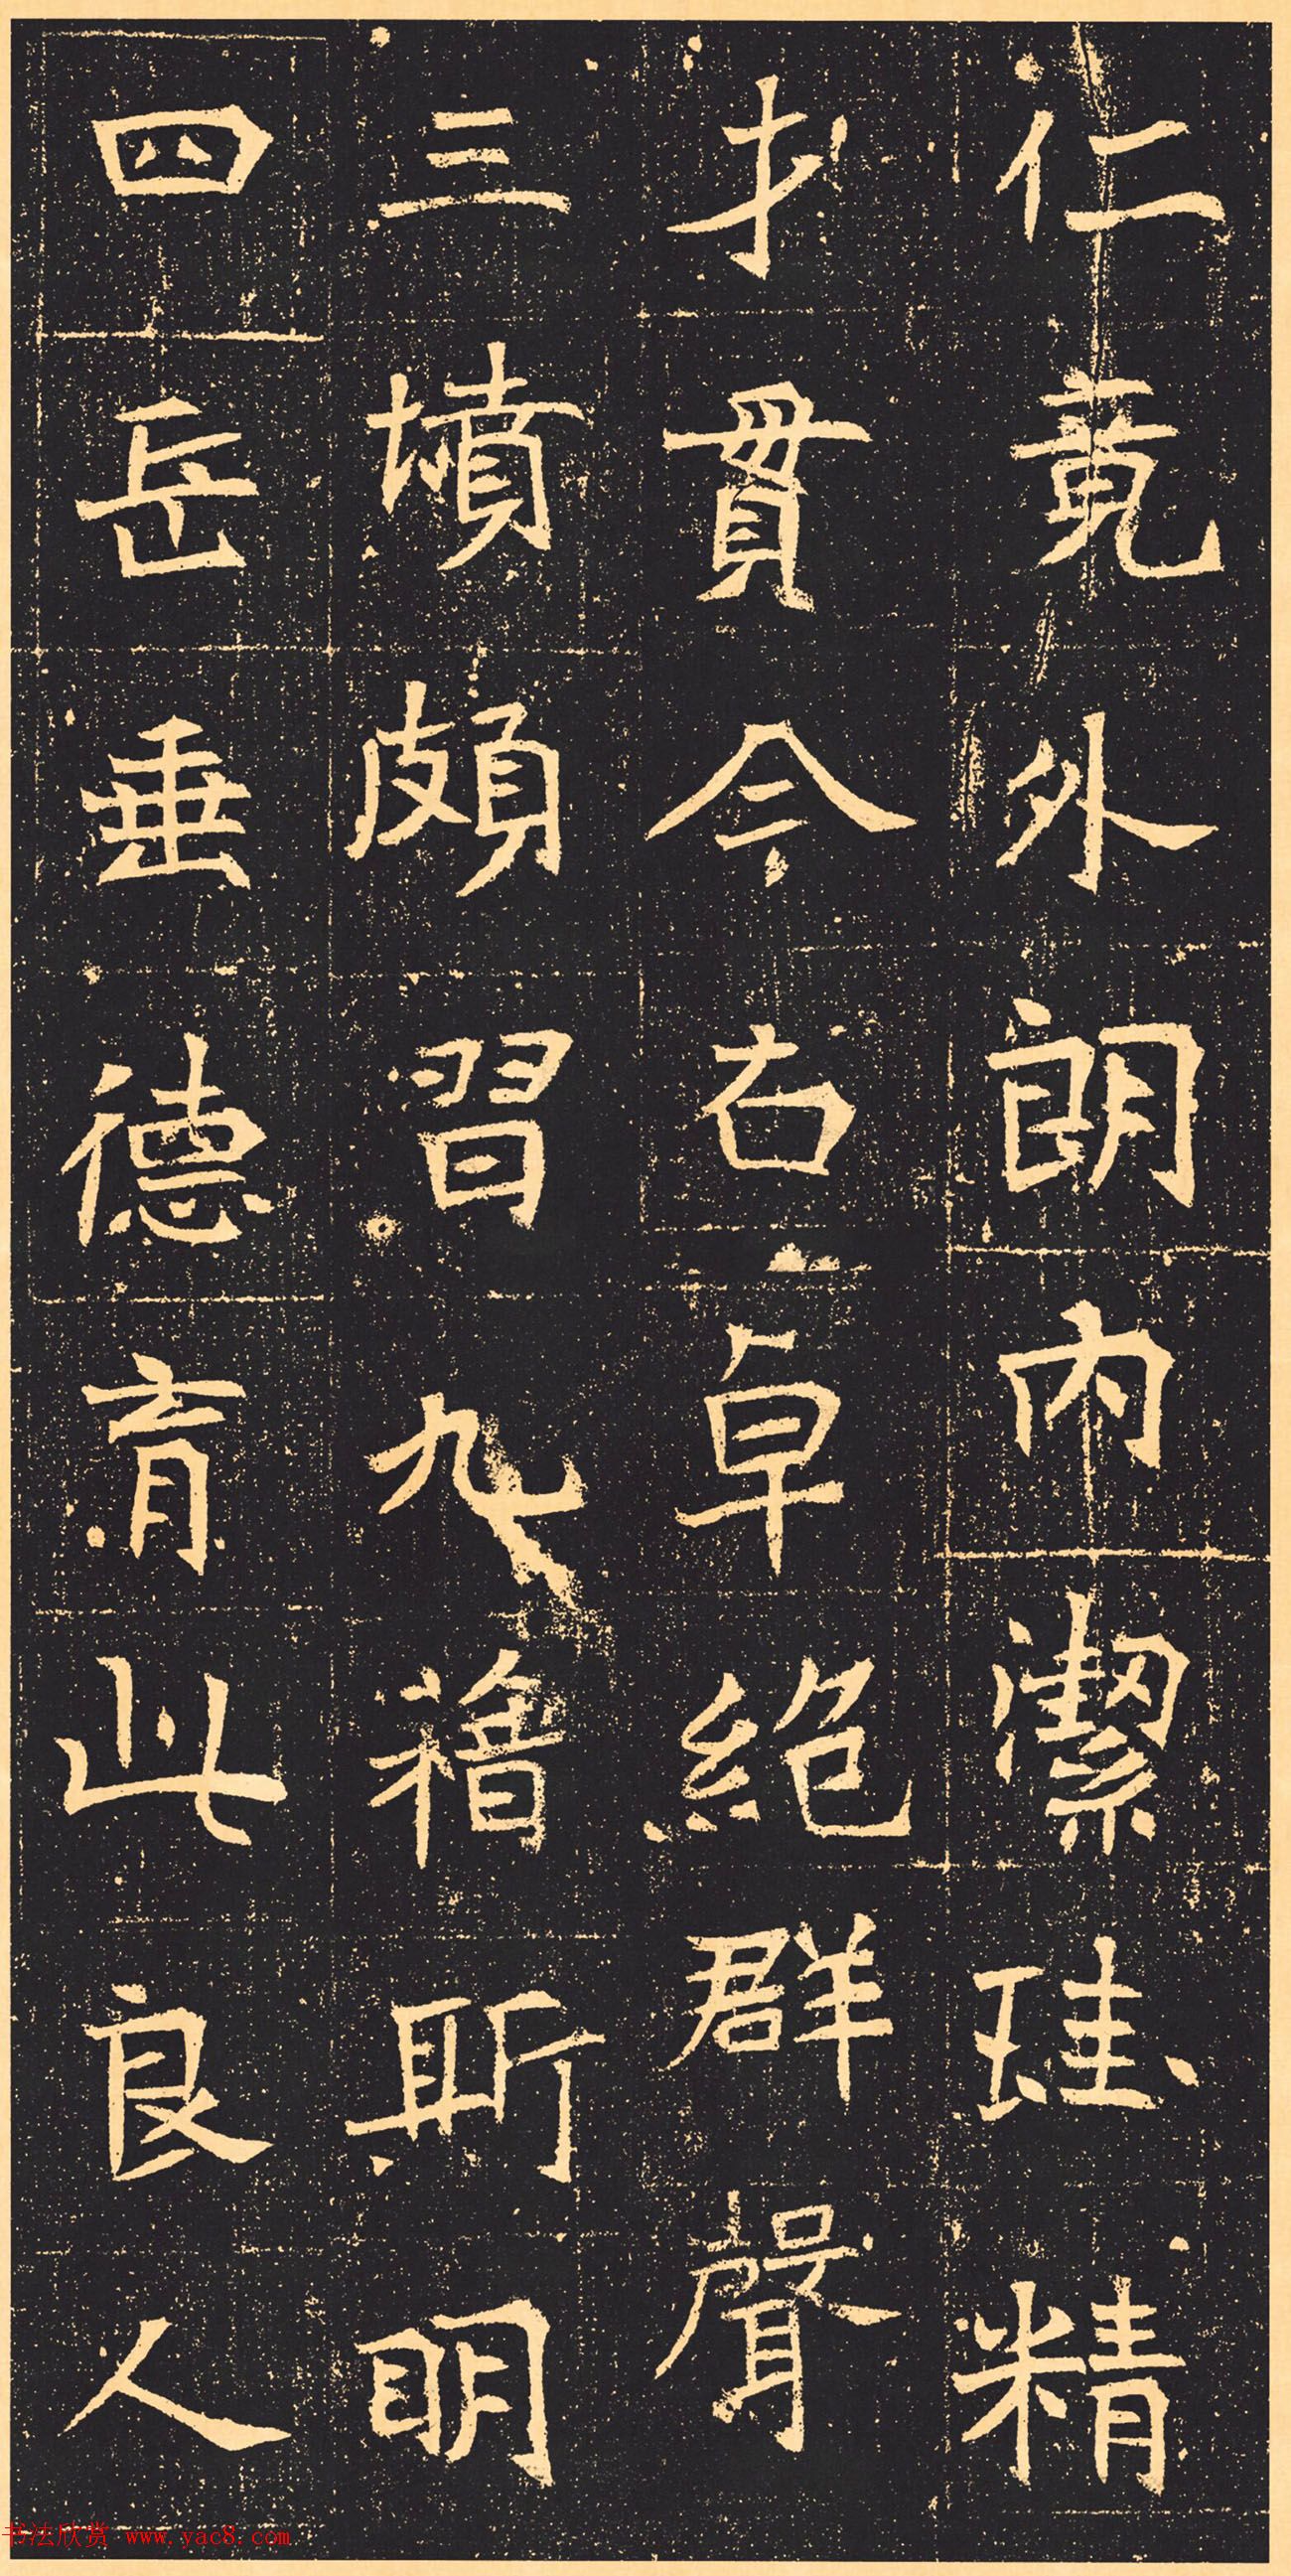 仁竟外朗內潔珪精
才貫今右卓絕群聲
三墳頗習九籍斯明
四岳垂德育此良人
书法欣赏 www.yac8.com